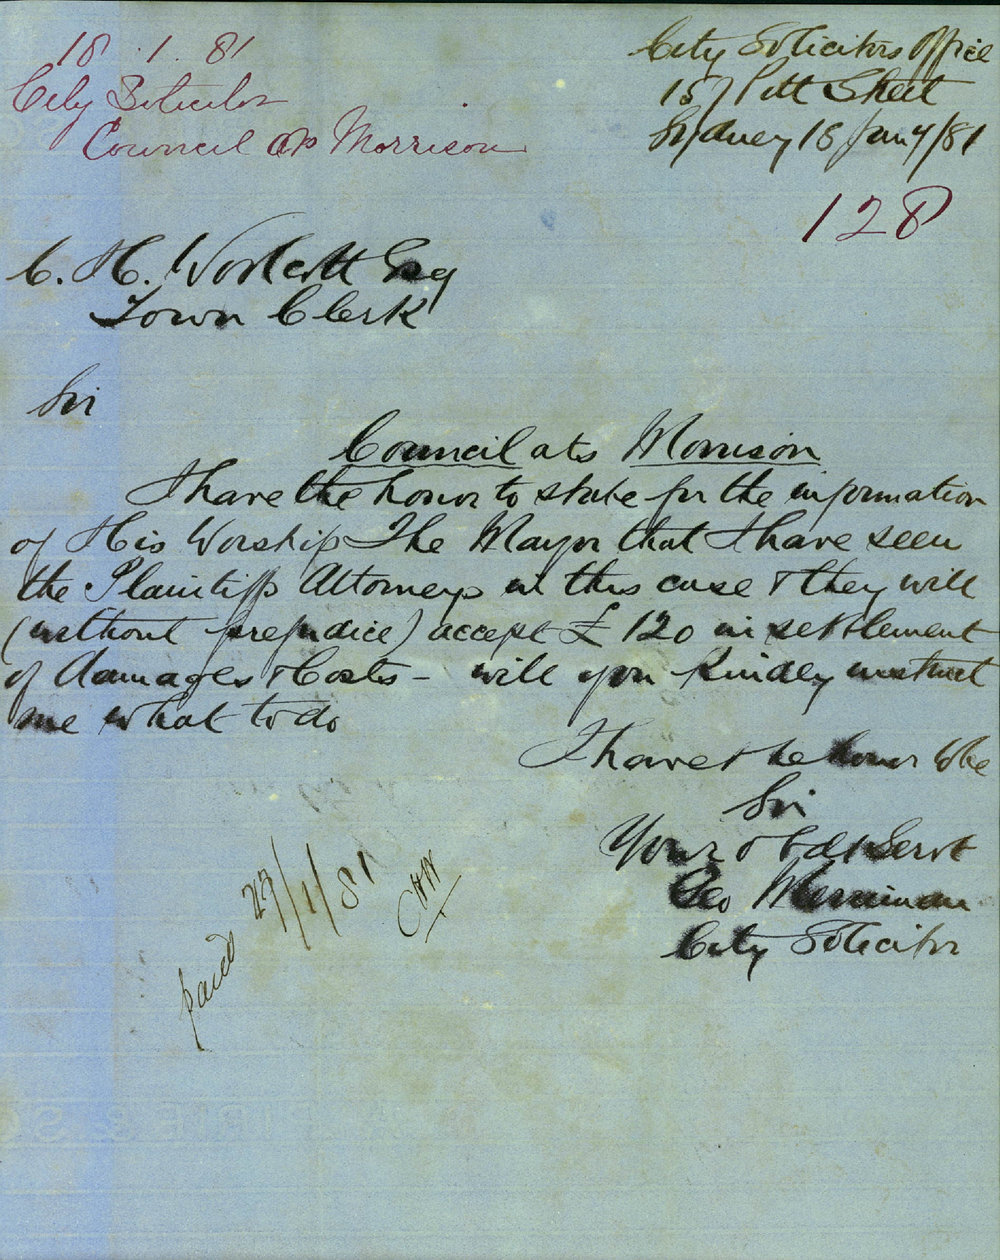 18.1.81
City Solicitor
Council ats Morrison
City Solicitors Office
157 Pitt Street
Sydney 18 Jany/81
128
C. H. Woolcott Esq
Town Clerk
Sir
Council ats Morrison
I have the honor to state for the information
of His Worship The Mayor that I have seen
the Plaintiffs Attorneys in this case & they will
(without prejudice) accept £120 in settlement
of damages & Costs – will you kindly instruct
me what to do
I have the honor to be
Sir
Your obdt Servt
Geo Merriman
City Solicitor
paid 27/1/81
CHW